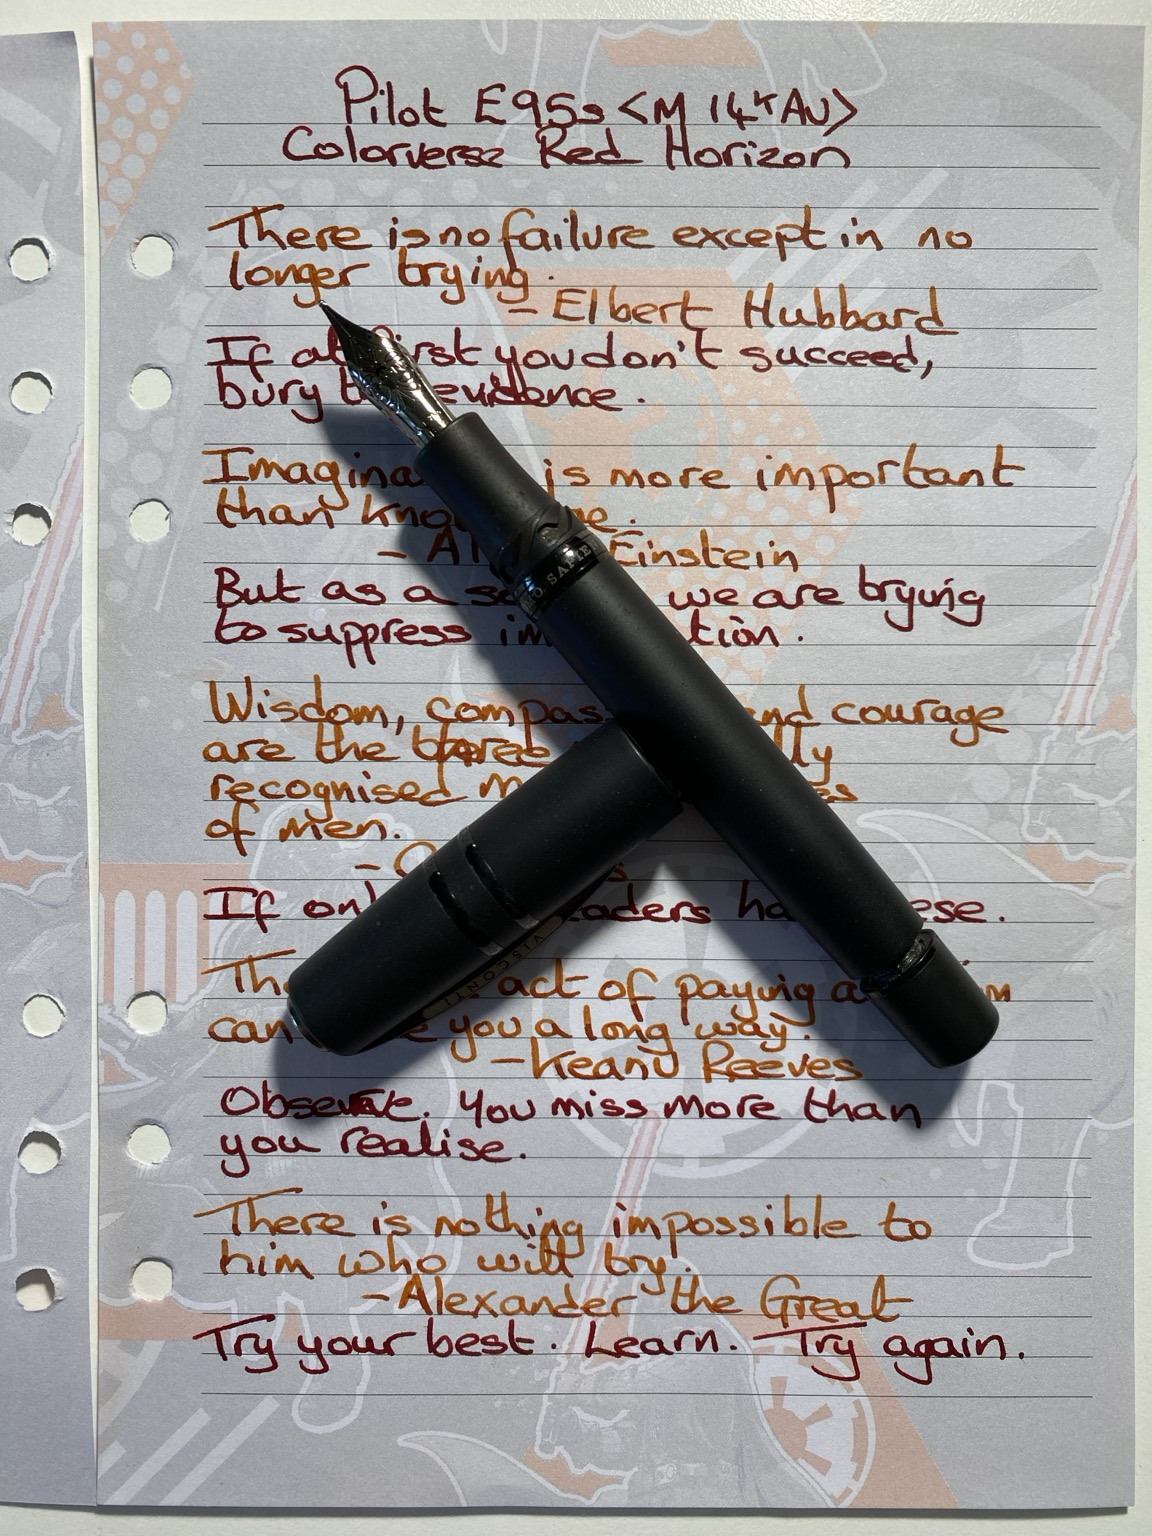 Pilot E95s <M 14k AU>
Colorverse Red Horizon
There is no failure except in no
longer trying.
- Elbert Hubbard
If at first you don't succeed,
bury evidence.
is more important
than
- Einstein
But as a we are trying
to suppress
Wisdom, and courage
are the three
recognised
of men.
If
act of paying
can you a long way.
- Keanu Reeves
Observe. You miss more than
you realise.
There is nothing impossible to
him who will try.
- Alexander the Great
Try your best. Learn. Try again.
VISCONTI